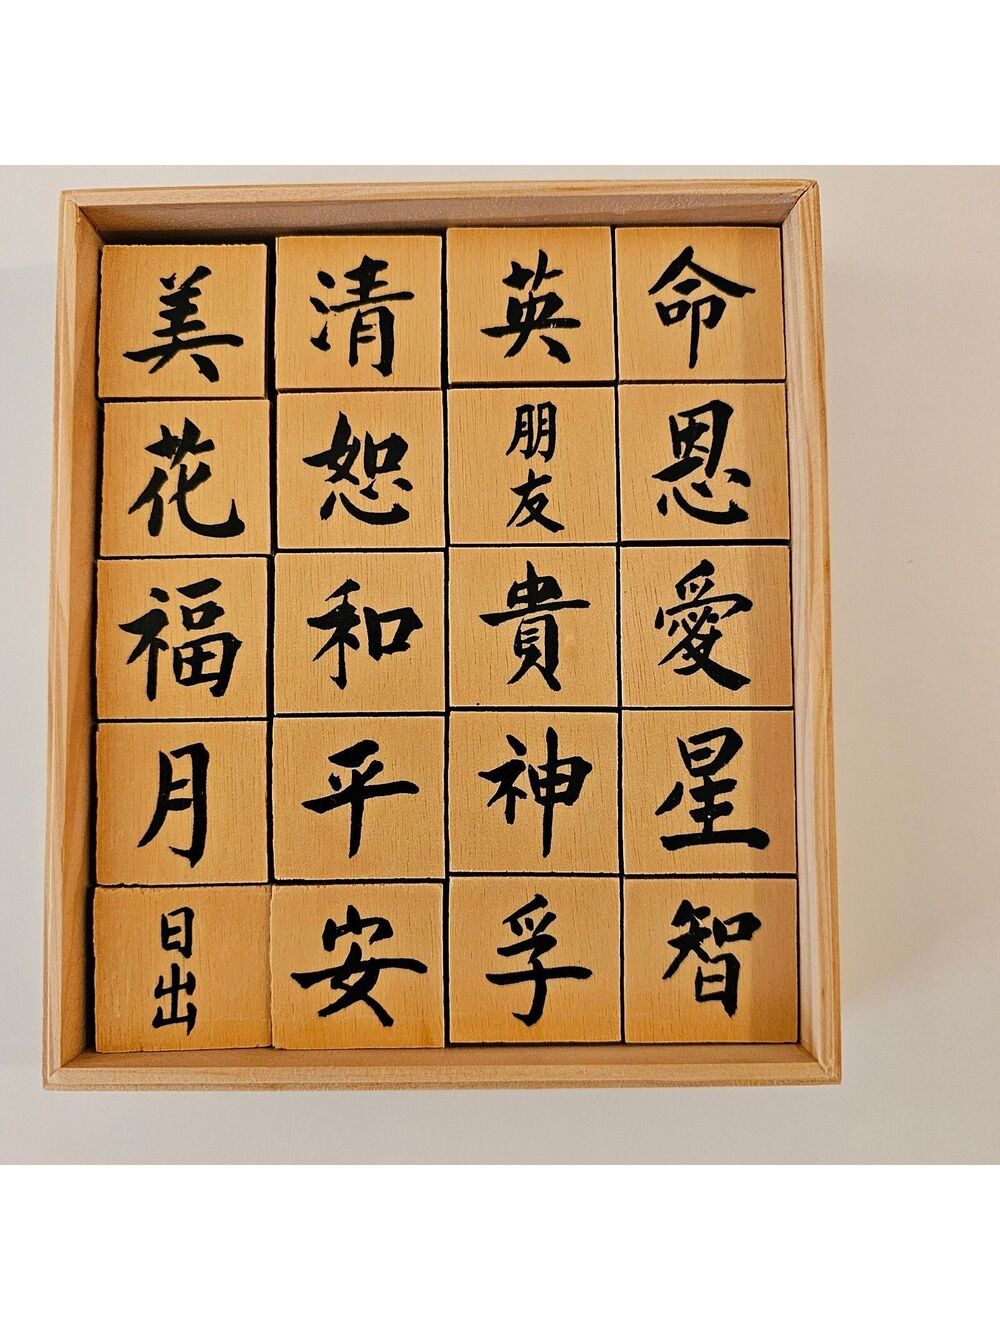 美 清 英 命
花 恕 朋友 恩
福 和 貴 愛
月 平 神 星
日出 安 孚 智